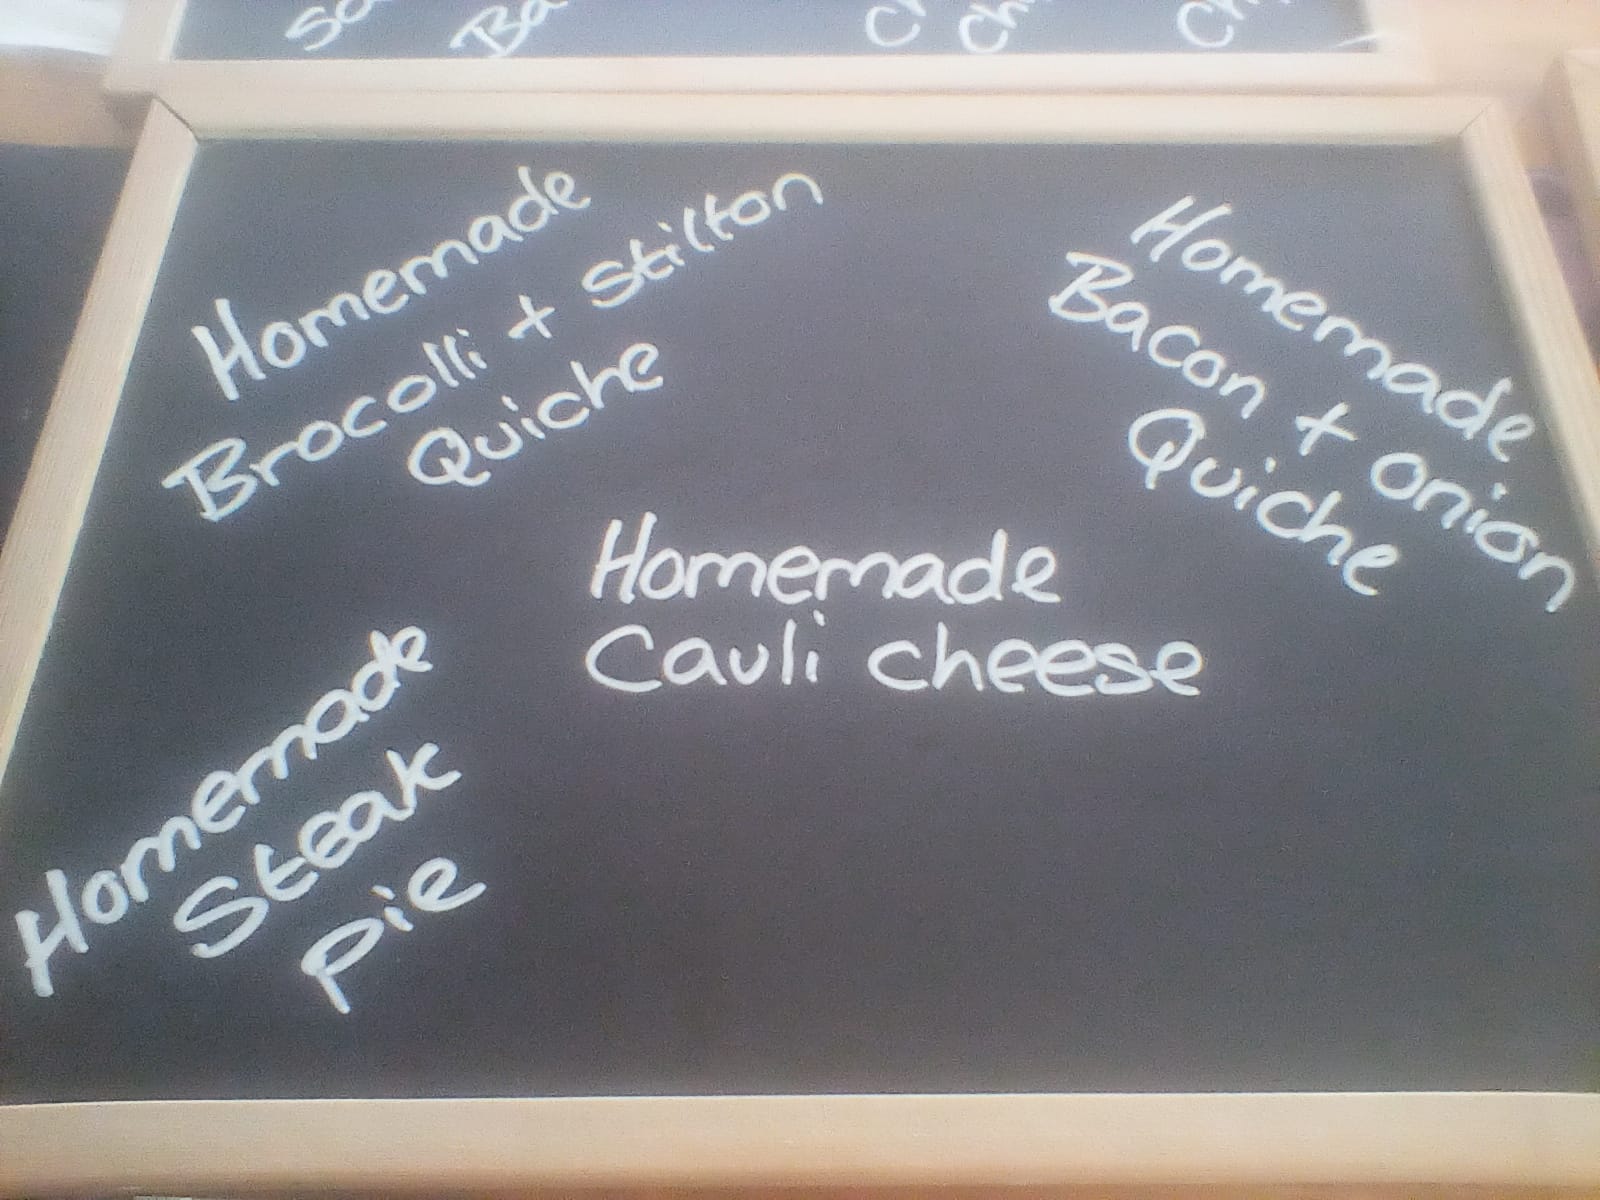 Homemade
Brocolli + Stilton
Quiche
Homemade
Bacon + onion
Quiche
Homemade
Cauli cheese
Homemade
Steak
Pie